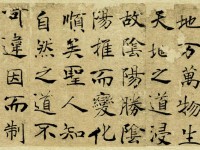 地万物生
天地之道浸
故陰陽勝陰
陽推而變化
順矣聖人知
自然之道不
可違因而制